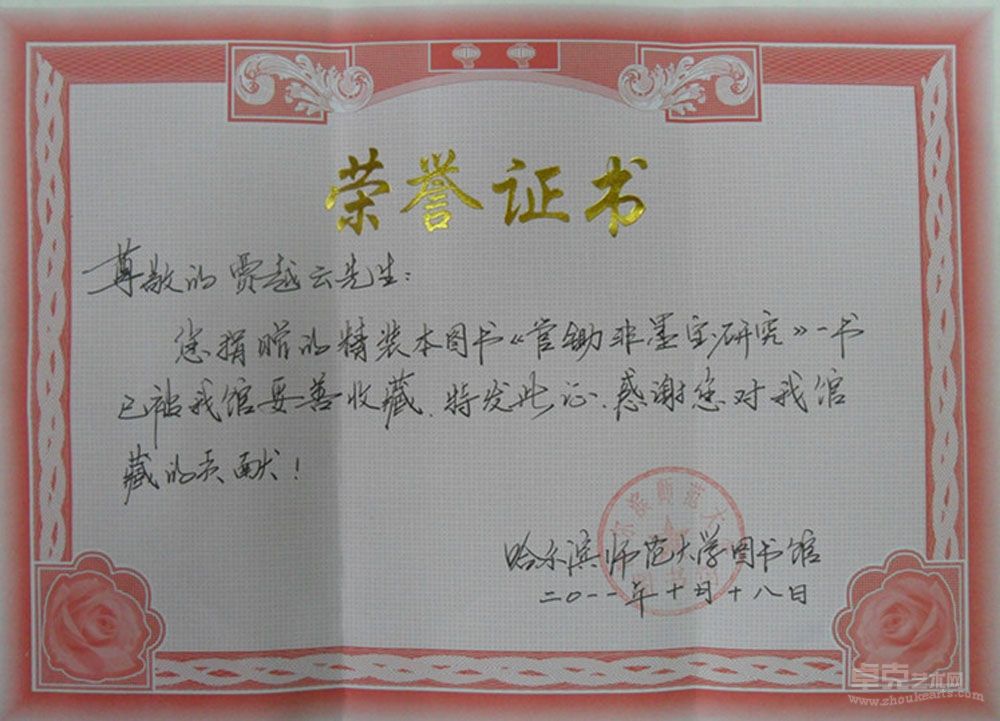 荣誉证书
尊敬的贾越云先生：
您捐赠的精装本图书《官锄非墨宝研究》一书
已被我馆妥善收藏，特发此证，感谢您对我馆
藏的贡献！
哈尔滨师范大学图书馆
二〇一一年十月十八日
卓克艺术网
www.zhoukearts.com